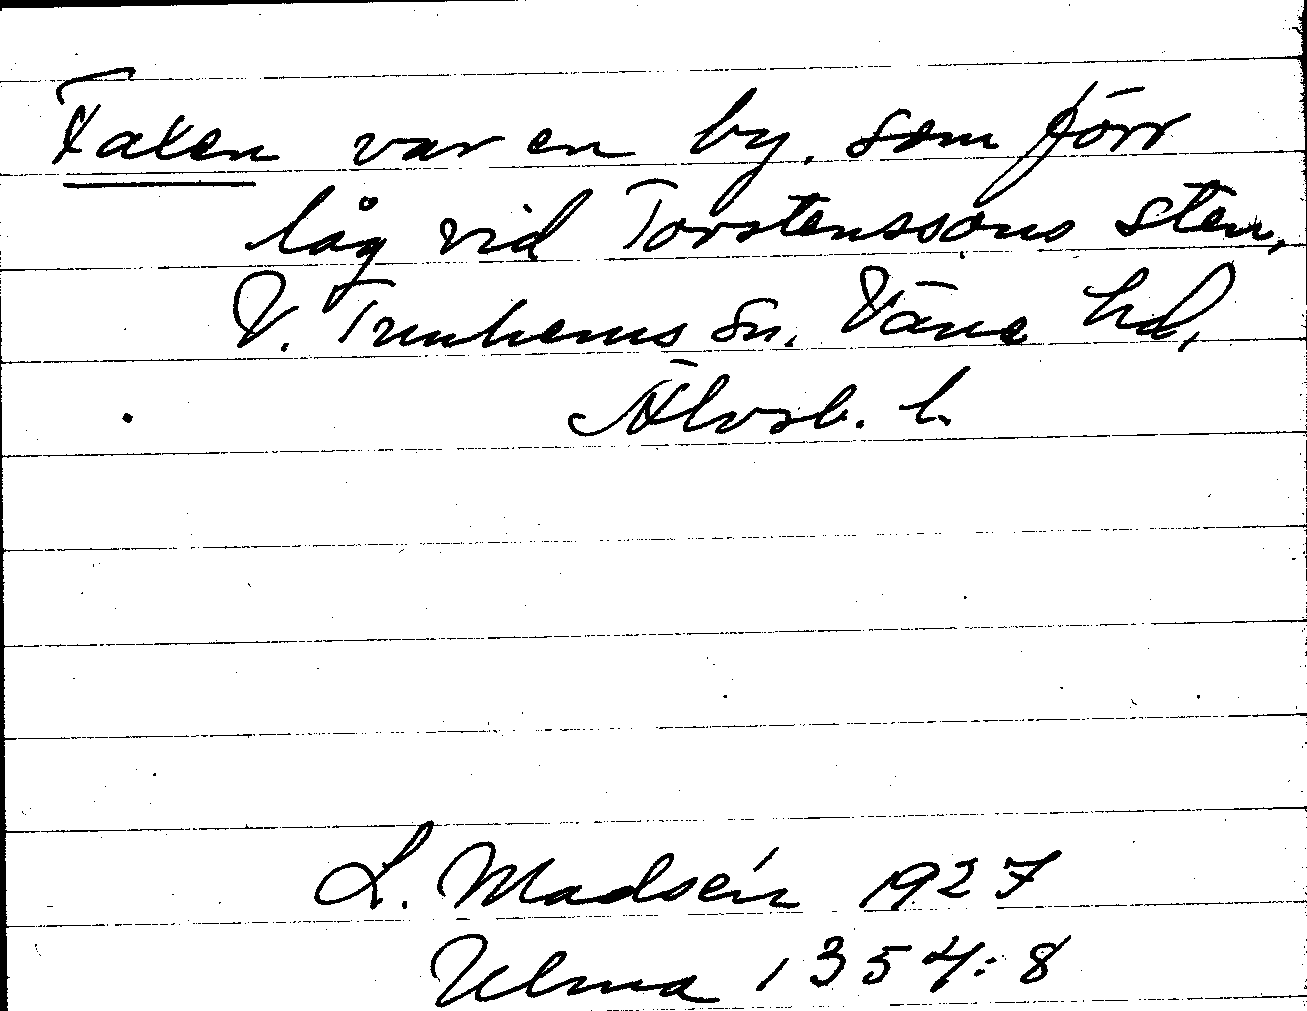 Faxen var en by, som förr
låg vid Torstenssons sten,
V. Tunhems sn. Väne hd,
Älvsb. l.
L. Madsén 1927
Ulma 1354:8